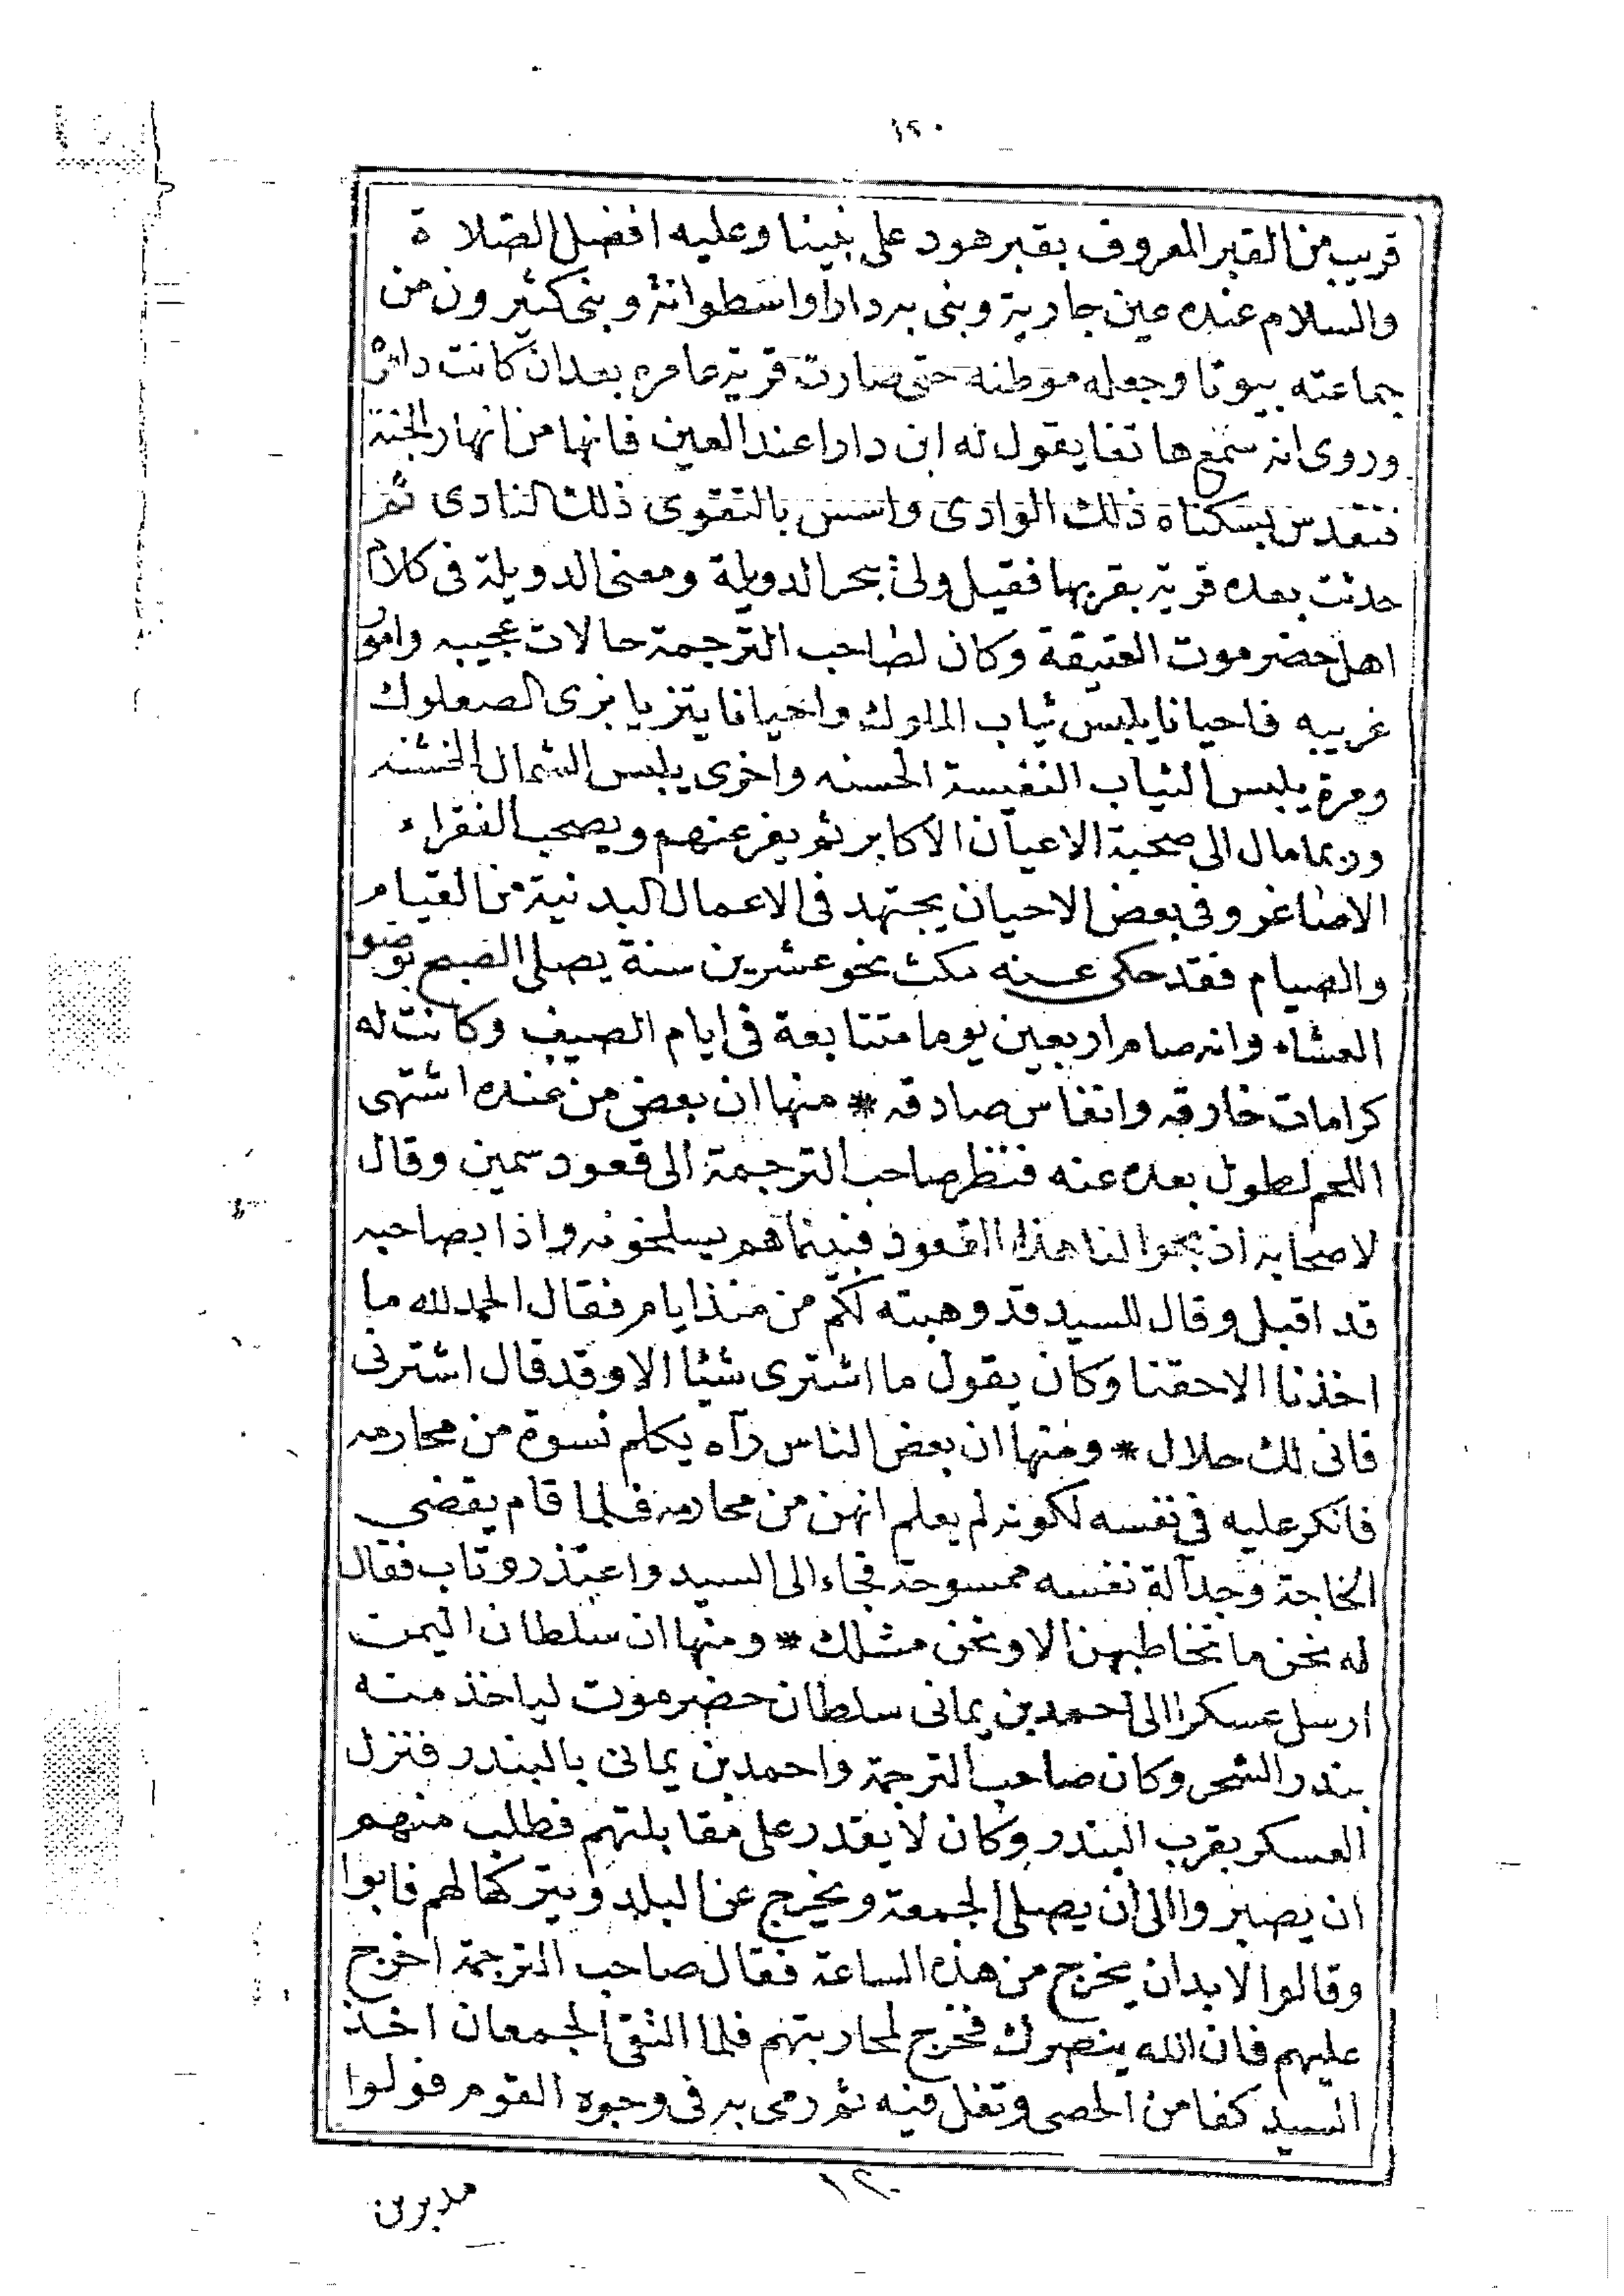 ١٢٠
قريب من القبر المعروف بقبر هود على نبينا وعليه افضل الصلاة
والسلام عنده عين جارية وبنى به دارا واسطوانة وبنى كثيرون من
جماعته بيوتا وجعله موطنه حتى صارت قرية عامره بعد ان كانت داثرة
وروى انه سمع هاتفا يقول له ابن دارا عند العين فانها من انهار الجنة
فتقدس بسكناه ذلك الوادى واسس بالتقوى ذلك النادى ثم
حدثت بعده قرية بقربها فقيل ولى بحر الدويلة ومعنى الدويلة فى كلام
اهل حضرموت العتيقة وكان لصاحب الترجمة حالات عجيبه وامور
غريبه فاحيانا يلبس ثياب الملوك واحيانا يتزيا بزى الصعلوك
ومرة يلبس الثياب النفيسة الحسنه واخرى يلبس الشمال الخشنه
وربما مال الى صحبة الاعيان الاكابر ثم يفر عنهم ويصحب الفقراء
الاصاغر وفى بعض الاحيان يجتهد فى الاعمال البدنية من القيام
والصيام فقد حكى عنه مكث نحو عشرين سنة يصلى الصبح بوضوء
العشاء وانه صام اربعين يوما متتابعة فى ايام الصيف وكانت له
كرامات خارقه وانفاس صادقه * منها ان بعض من عنده اشتهى
اللحم لطول بعده عنه فنظر صاحب الترجمة الى قعود سمين وقال
لاصحابه اذبحوا لنا هذا القعود فبينما هم يسلخونه واذا بصاحبه
قد اقبل وقال للسيد قد وهبته لكم من منذ ايام فقال الحمد لله ما
اخذنا الا حقنا وكان يقول ما اشترى شيئا الا وقد قال اشترنى
فانى لك حلال * ومنها ان بعض الناس رآه يكلم نسوة من محارمه
فانكر عليه فى نفسه لكونه لم يعلم انهن من محارمه فلما قام يقضي
الحاجة وجد آلة نفسه ممسوحة فجاء الى السيد واعتذر وتاب فقال
له نحن ما نخاطبهن الا ونحن مثلك * ومنها ان سلطان اليمن
ارسل عسكرا الى احمد بن يمانى سلطان حضرموت لياخذ منه
بندر الشحر وكان صاحب الترجمة واحمد بن يمانى بالبندر فنزل
العسكر بقرب البندر وكان لا يقدر على مقابلتهم فطلب منهم
ان يصبروا الى ان يصلى الجمعة ويخرج عن البلد ويتركها لهم فابوا
وقالوا لا بد ان يخرج من هذه الساعة فقال صاحب الترجمة اخرج
عليهم فان الله ينصرك فخرج لمحاربتهم فلما التقى الجمعان اخذ
السيد كفا من الحصى وتفل فيه ثم رمى به فى وجوه القوم فولوا
١٢٠
مدبرين